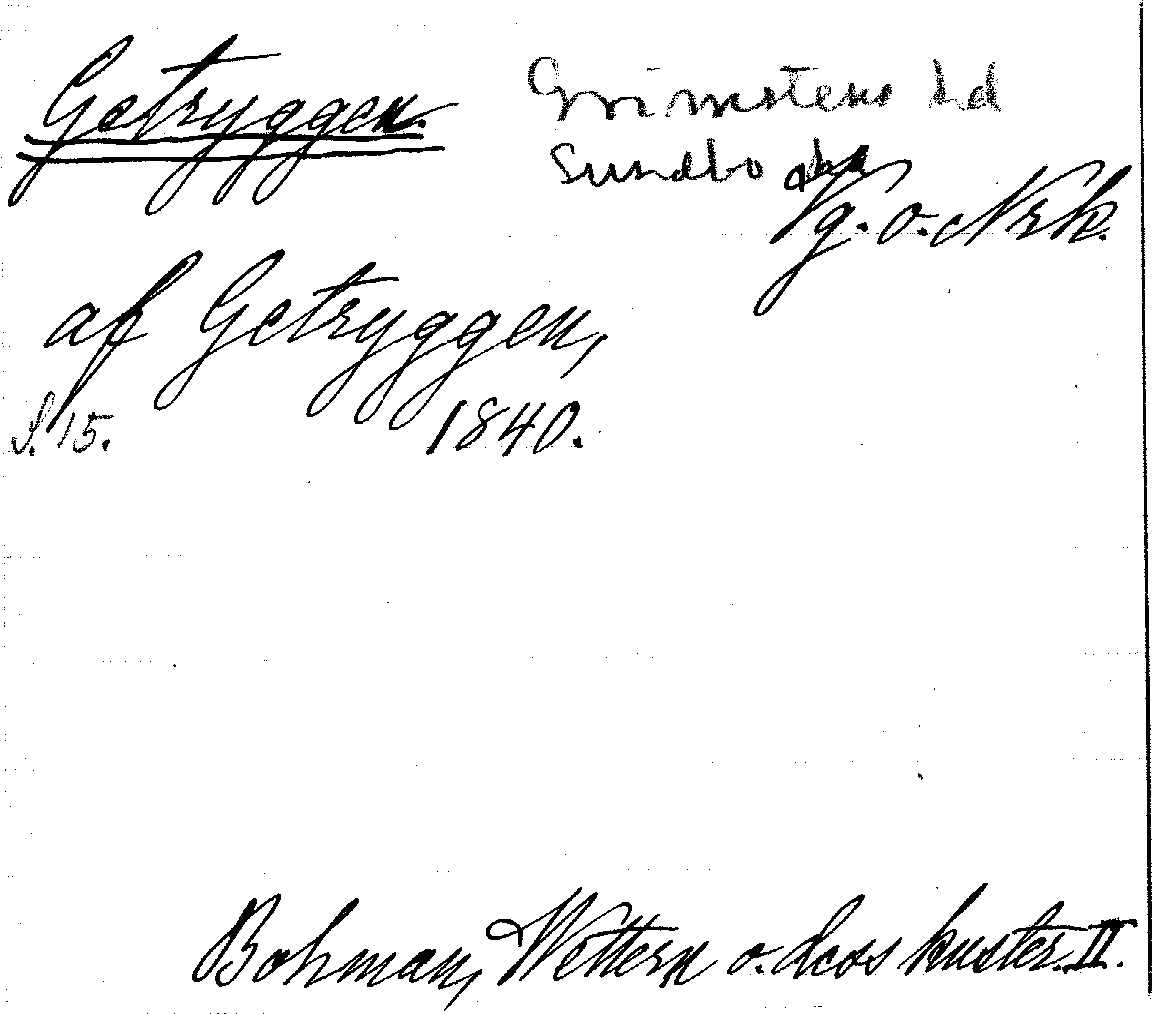 Getryggen. Grimstens hd
Sundbo
Vg. o. Nrk.
af Getryggen,
S. 15. 1840.
Bohman, Wettern o. dess kuster. II.